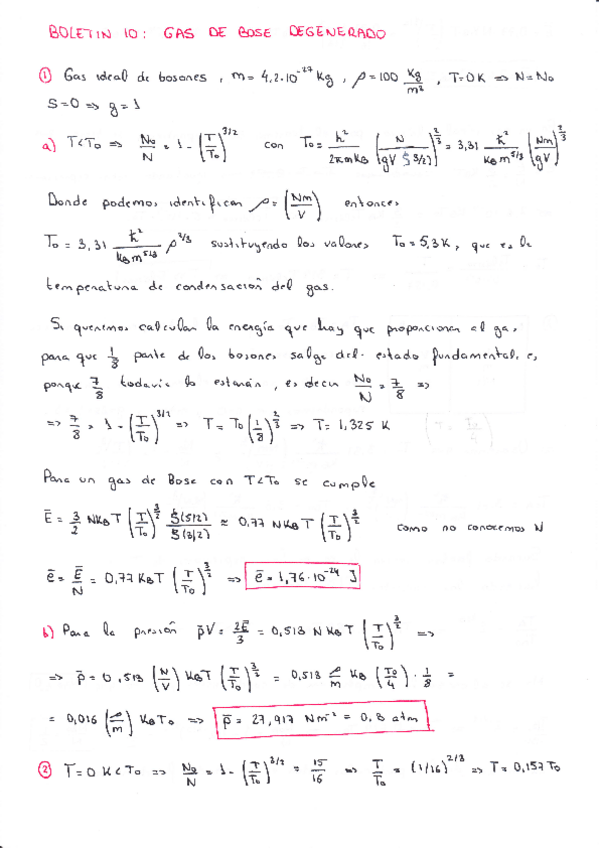 BOLETIN 10: GAS DE BOSE DEGENERADO
① Gas ideal de bosones, m=4,2·10⁻²⁷ Kg, ρ=100 Kg/m², T=0K ⇒ N=N₀
S=0 ⇒ g=1
a) T<T₀ ⇒ N₀/N = 1 - (T/T₀)^3/2 con T₀ = h²/2πmKB (N/gVζ(3/2))^2/3 = 3,31 ħ²/KBm^5/3 (Nm/gV)^2/3
Donde podemos identificar ρ = (Nm/V) entonces
T₀ = 3,31 ħ²/KBm^5/3 ρ^2/3 sustituyendo los valores T₀=5,3K, que es la
temperatura de condensación del gas.
Si queremos calcular la energía que hay que proporcionar al gas
para que 1/8 parte de los bosones salga del estado fundamental, es
porque 7/8 todavía lo estarán, es decir N₀/N = 7/8 ⇒
⇒ 7/8 = 1 - (T/T₀)^3/2 ⇒ T = T₀(1/8)^2/3 ⇒ T = 1,325 K
Para un gas de Bose con T<T₀ se cumple
Ē = 3/2 NKBT (T/T₀)^3/2 ζ(5/2)/ζ(3/2) ≈ 0,77 NKBT (T/T₀)^3/2 como no conocemos N
ē = Ē/N = 0,77 KBT (T/T₀)^3/2 ⇒ ē = 1,76·10⁻²⁴ J
b) Para la presión p̄V = 2Ē/3 = 0,513 NKBT (T/T₀)^3/2 ⇒
⇒ p̄ = 0,513 (N/V) KBT (T/T₀)^3/2 = 0,513 ρ/m KB (T₀/4) · 1/8 =
= 0,016 (ρ/m) KBT₀ ⇒ p̄ = 27,917 Nm⁻² = 0,8 atm
② T=0K<T₀ ⇒ N₀/N = 1 - (T/T₀)^3/2 = 15/16 ⇒ T/T₀ = (1/16)^2/3 ⇒ T = 0,157 T₀